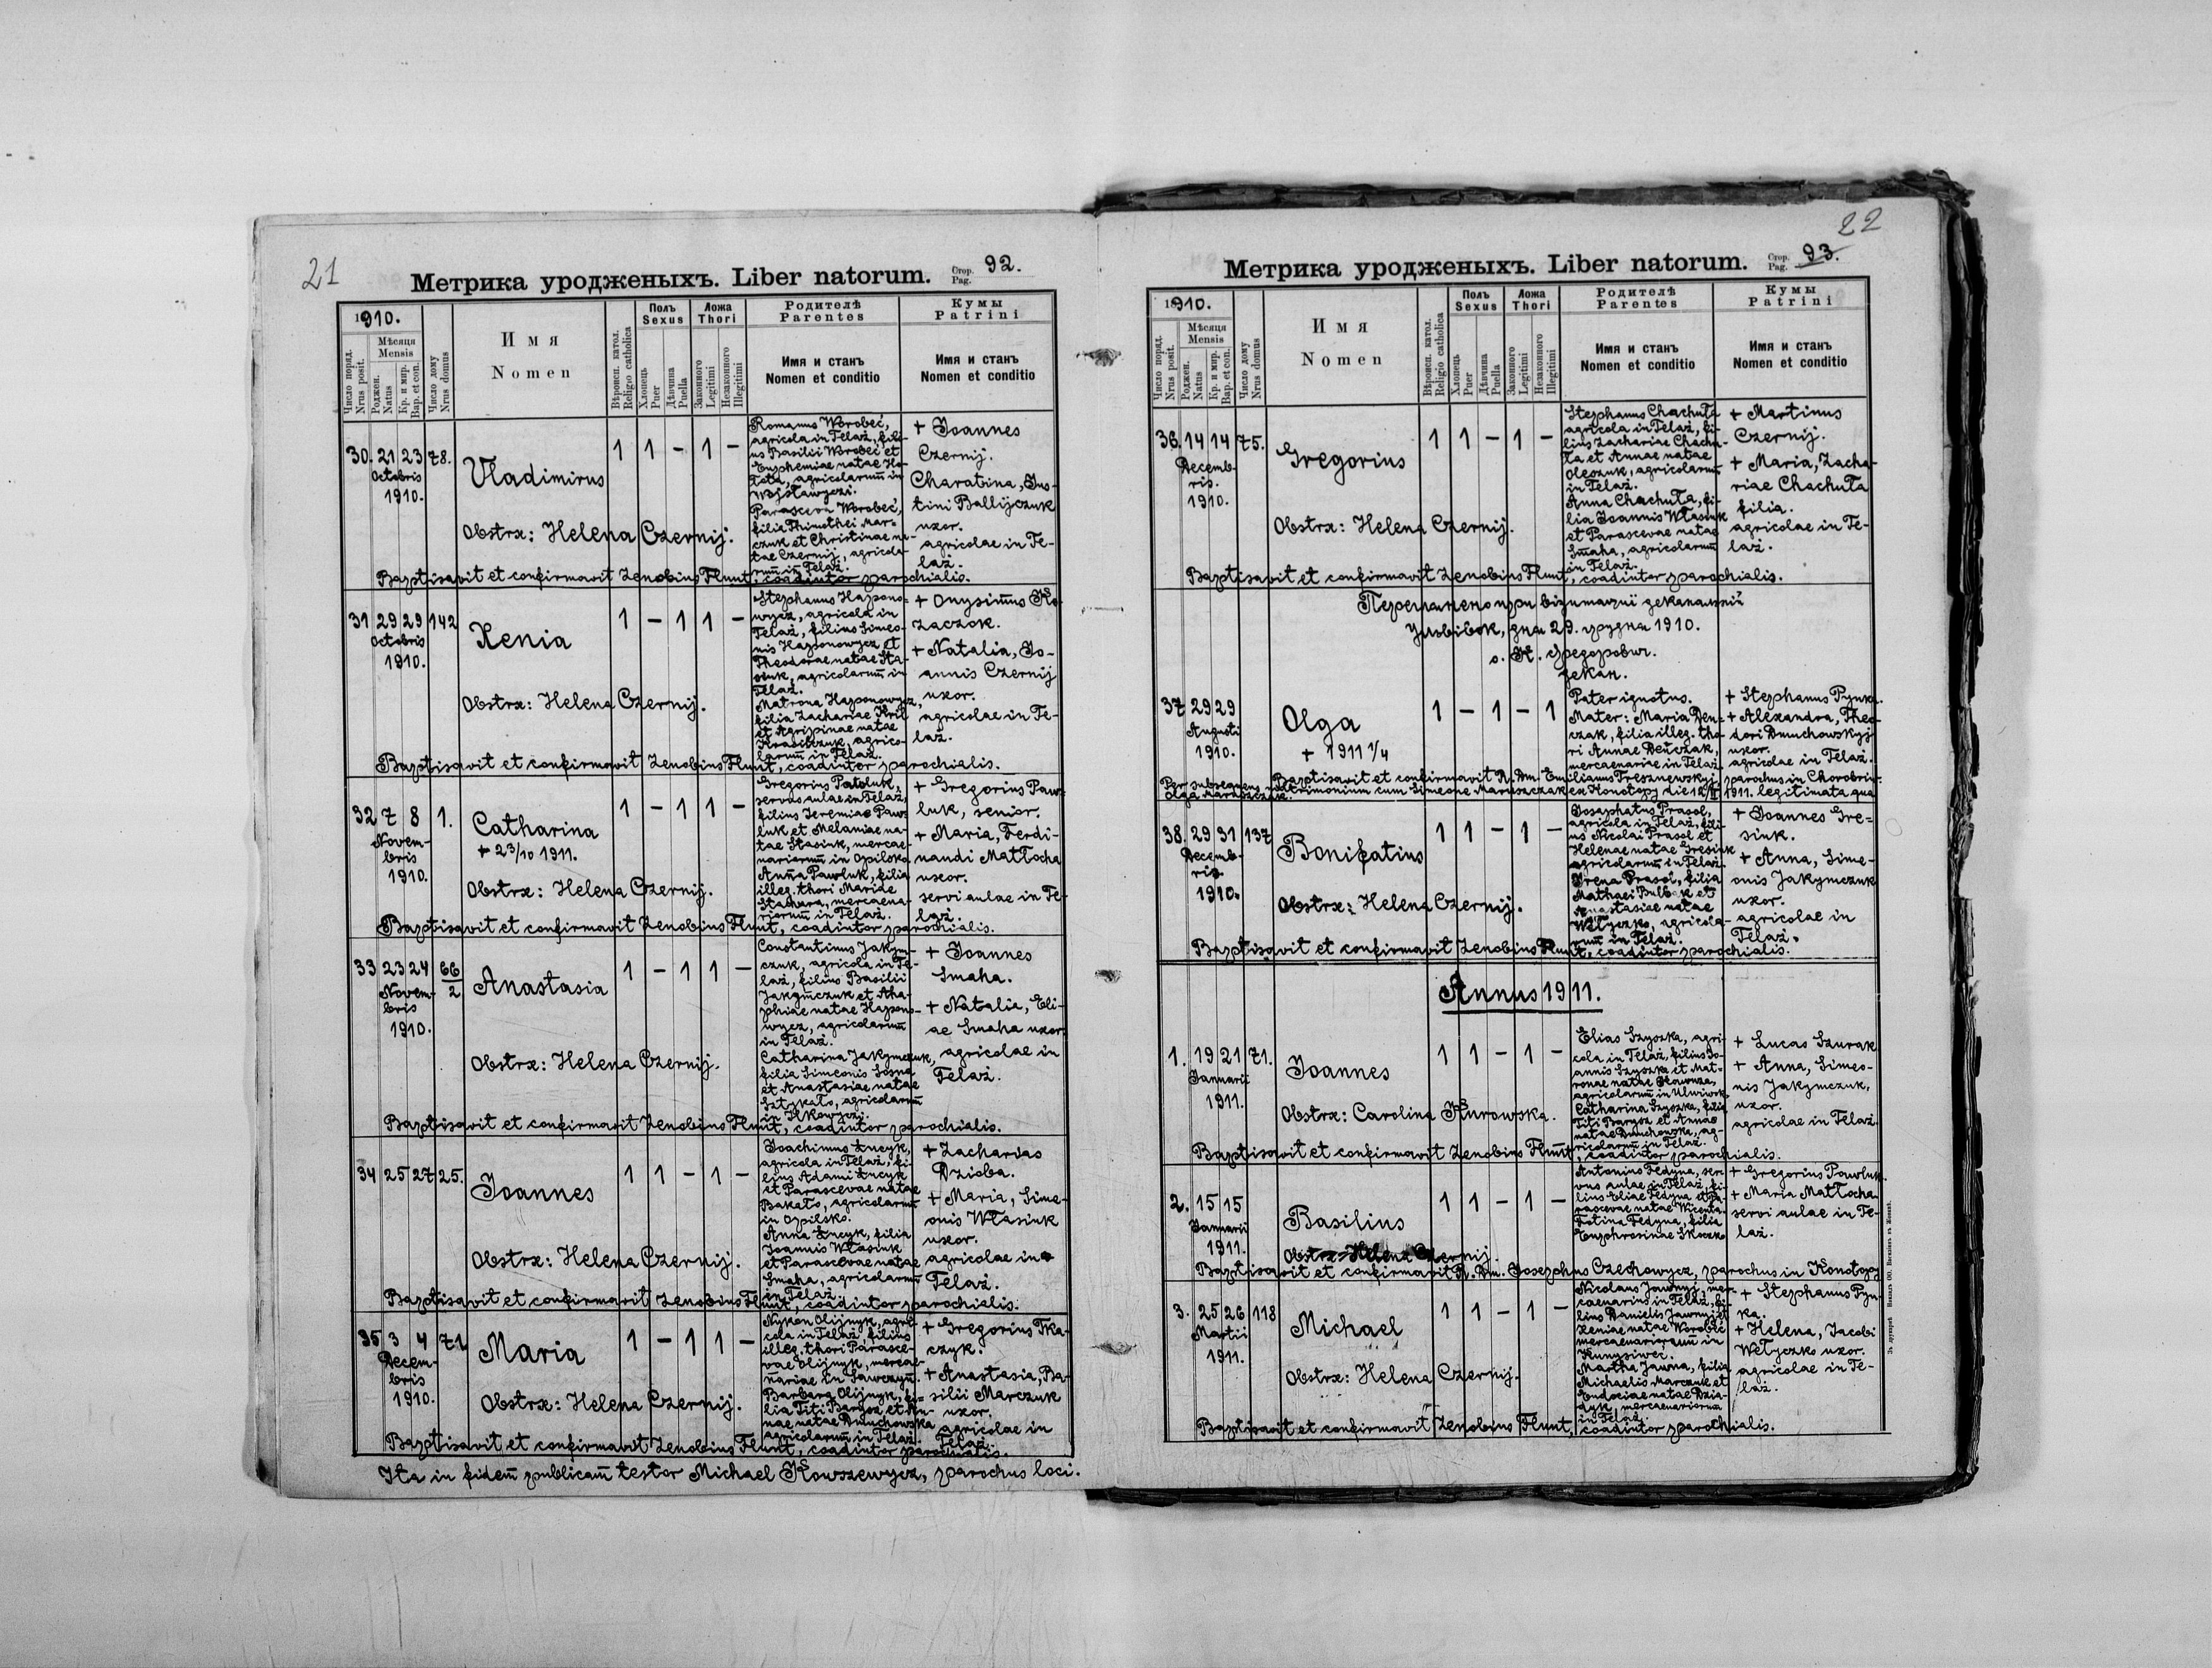 21
Метрика уродженыхъ. Liber natorum. Стор. Pag. 92.
1910.
Число поряд. Nrus posit.
Мѣсяця Mensis
Роджен. Natus
Кр. и мир. Bap. et con.
Число дому Nrus domus
Имя
Nomen
Вѣроисп. катол. Religio catholica
Полъ Sexus
Хлопець Puer
Дѣвчина Puella
Ложа Thori
Законного Legitimi
Незаконного Illegitimi
Родителѣ
Parentes
Имя и станъ
Nomen et conditio
Кумы
Patrini
Имя и станъ
Nomen et conditio
30. 21 23 78.
Octobris
1910.
Vladimirus
1 1 - 1 -
Obstrx: Helena Czernij.
Romanus Worobeć,
agricola in Telaż, fili-
us Basilii Worobeć et
Euphemiae natae Ho-
agricolarum in
Parasceva Worobeć,
filia Thimothei Mar-
czuk et Christinae na-
tae Czernij, agricola-
rum in Telaż.
+ Joannes
Czernij.
Charatina, Jus-
tini Ballijczuk
uxor.
agricolae in Te-
laż.
Baptisavit et confirmavit Zenobius Flunt, coadiutor parochialis.
31 29 29 142
Octobris
1910.
Xenia
1 - 1 1 -
Obstrx: Helena Czernij.
Stephanus Hapono-
wycz, agricola in
Telaż, filius Simeo-
nis Haponowycz et
Theodorae natae Sta-
siuk, agricolarum in
Telaż.
Matrona Haponowycz,
filia Zachariae
et Agripinae natae
agrico-
larum in Telaż.
+ Onysimus Ko-
zaczok.
+ Natalia, Jo-
annis Czernij
uxor.
agricolae in Te-
laż.
Baptisavit et confirmavit Zenobius Flunt, coadiutor parochialis.
32 7 8 1.
Novem-
bris
1910.
Catharina
+ 23/10 1911.
1 - 1 1 -
Obstrx: Helena Czernij.
Gregorius
servus aulae in Telaż,
filius Jeremiae Paw-
luk et Melaniae na-
tae Stasiuk, mercae-
nariorum in Opilsko.
Anna Pawluk, filia
illeg. thori Mariae
Stachera, mercaena-
riorum in Telaż.
+ Gregorius Paw-
luk, senior.
+ Maria, Ferdi-
nandi Matłocha
uxor.
servi aulae in Te-
laż.
Baptisavit et confirmavit Zenobius Flunt, coadiutor parochialis.
33 23 24 66/2
Novem-
bris
1910.
Anastasia
1 - 1 1 -
Obstrx: Helena Czernij.
Constantinus Jakym-
czuk, agricola in Te-
laż, filius Basilii
Jakymczuk et Aha-
phiae natae Hapono-
wycz, agricolarum
in Telaż.
Catharina Jakymczuk,
filia Simeonis Sosna
et Anastasiae natae
Sztykało, agricolarum
in Ilkowyczi.
+ Joannes
Smaha.
+ Natalia, Eli-
ae Smaha uxor.
agricolae in
Telaż.
Baptisavit et confirmavit Zenobius Flunt, coadiutor parochialis.
34 25 27 25.
Joannes
1 1 - 1 -
Obstrx: Helena Czernij.
Joachimus Łucyk,
agricola in Telaż, fi-
lius Adami Łucyk
et Parascevae natae
Bakato, agricolarum
in Opilsko.
Anna Łucyk, filia
Joannis Własiuk
et Parascevae natae
Smaha, agricolarum
in Telaż.
+ Zacharias
Dzioba.
+ Maria, Sime-
onis Własiuk
uxor.
agricolae in
Telaż.
Baptisavit et confirmavit Zenobius Flunt, coadiutor parochialis.
35 3 4 71
Decem-
bris
1910.
Maria
1 - 1 1 -
Obstrx: Helena Czernij.
Nykon Olijnyk, agri-
cola in Telaż, filius
illeg. thori Parasce-
vae Olijnyk, mercae-
nariae in Sawczyn.
Barbara Olijnyk, fi-
lia Titi Barysz et An-
nae natae Dmuchowska
agricolarum in Telaż.
+ Gregorius Tka-
czyk.
+ Anastasia, Ba-
silii Marczuk
uxor.
agricolae in
Telaż.
Baptisavit et confirmavit Zenobius Flunt, coadiutor parochialis.
Ita in fidem publicam testor Michael Kowszewycz, parochus loci.
22
Метрика уродженыхъ. Liber natorum. Стор. Pag. 93.
1910.
Число поряд. Nrus posit.
Мѣсяця Mensis
Роджен. Natus
Кр. и мир. Bap. et con.
Число дому Nrus domus
Имя
Nomen
Вѣроисп. катол. Religio catholica
Полъ Sexus
Хлопець Puer
Дѣвчина Puella
Ложа Thori
Законного Legitimi
Незаконного Illegitimi
Родителѣ
Parentes
Имя и станъ
Nomen et conditio
Кумы
Patrini
Имя и станъ
Nomen et conditio
36. 14 14 75.
Decemb-
ris.
1910.
Gregorius
1 1 - 1 -
Obstrx: Helena Czernij.
Stephanus Chachuła
agricola in Telaż, fi-
lius Zachariae Chachu-
ła et Annae natae
agricolarum
in Telaż.
Anna Chachuła, fi-
lia Joannis Własiuk
et Parascevae natae
Smaha, agricolarum
in Telaż.
+ Martinus
Czernij.
+ Maria, Zacha-
riae Chachuła
filia.
agricolae in Te-
laż.
Baptisavit et confirmavit Zenobius Flunt, coadiutor parochialis.
Переглянено при візитації деканальній
Угнівок, дня 29. грудня 1910.
о. К. Федорович.
декан.
37 29 29
Augusti
1910.
Olga
+ 1911 1/4
1 - 1 - 1
Pater ignotus.
Mater: Maria Den-
czak, filia illeg. tho-
ri Annae Denczak,
mercaenariae in Telaż.
+ Stephanus Pynka.
+ Alexandra, Theo-
dori Dmuchowskyj
uxor.
agricolae in Telaż.
Baptisavit et confirmavit R. Dm. Emilianus Tresznewskyj, parochus in Chorobriw.
Per subsequens matrimonium cum Simeone Maruszczak ex Konotopy die 12/II 1911. legitimata qua
Olga Maruszczak.
38. 29 31 137
Decemb-
ris
1910.
Bonifatius
1 1 - 1 -
Obstrx: Helena Czernij.
Josaphatus Prasoł,
agricola in Telaż, fili-
us Nicolai Prasoł et
Helenae natae Gresiuk
agricolarum in Telaż.
Irena Prasoł, filia
Mathaei et
Anastasiae natae
Wełyczko, agricola-
rum in Telaż.
+ Joannes Gre-
siuk.
+ Anna, Sime-
onis Jakymczuk
uxor.
agricolae in
Telaż.
Baptisavit et confirmavit Zenobius Flunt, coadiutor parochialis.
Annus 1911.
1. 19 21 71.
Januarii
1911.
Joannes
1 1 - 1 -
Obstrx: Carolina Kurowska.
Elias Szyszka, agri-
cola in Telaż, filius Jo-
annis Szyszka et Mat-
ronae natae
agricolarum in Ulwiwok.
Catharina Szyszka, filia
Titi Barysz et Annae
natae Dmuchowska, ag-
ricolarum in Telaż.
+ Lucas Szurak
+ Anna, Simeo-
nis Jakymczuk,
uxor.
agricolae in Telaż.
Baptisavit et confirmavit Zenobius Flunt, coadiutor parochialis.
2. 15 15
Januarii
1911.
Basilius
1 1 - 1 -
Obstrx: Helena Czernij.
Antonius Fedyna, ser-
vus aulae in Telaż, fi-
lius Eliae Fedyna et Pa-
rascevae natae
Fotina Fedyna, filia
Euphrosinae
+ Gregorius Pawluk.
+ Maria Matłocha
servi aulae in Te-
laż.
Baptisavit et confirmavit R. Dm. Josephus Czechowycz, parochus in Konotopy
3. 25 26 118
Martii
1911.
Michael
1 1 - 1 -
Obstrx: Helena Czernij.
Nicolaus Jawnyj, mer-
caenarius in Telaż, fi-
lius Danielis Jawnyj et
Xeniae natae Worobeć
mercaenariorum in
Martha Jawna, filia
Michaelis Marczuk et
Eudociae natae Dzia-
dyk, mercaenariorum
in Telaż.
+ Stephanus Pyn-
ka.
+ Helena, Jacobi
Wełyczko uxor.
agricolae in Te-
laż.
Baptisavit et confirmavit Zenobius Flunt, coadiutor parochialis.